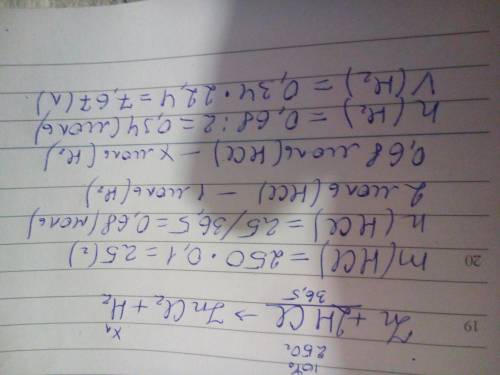 10%
250г x л
Zn + 2HCl → ZnCl₂ + H₂
36,5
19
m(HCl) = 250 · 0,1 = 25(г)
20
n(HCl) = 25/36,5 = 0,68(моль)
2 моль(HCl) – 1 моль(H₂)
0,68 моль(HCl) – x моль(H₂)
n(H₂) = 0,68 : 2 = 0,34(моль)
V(H₂) = 0,34 · 22,4 = 7,67(л)